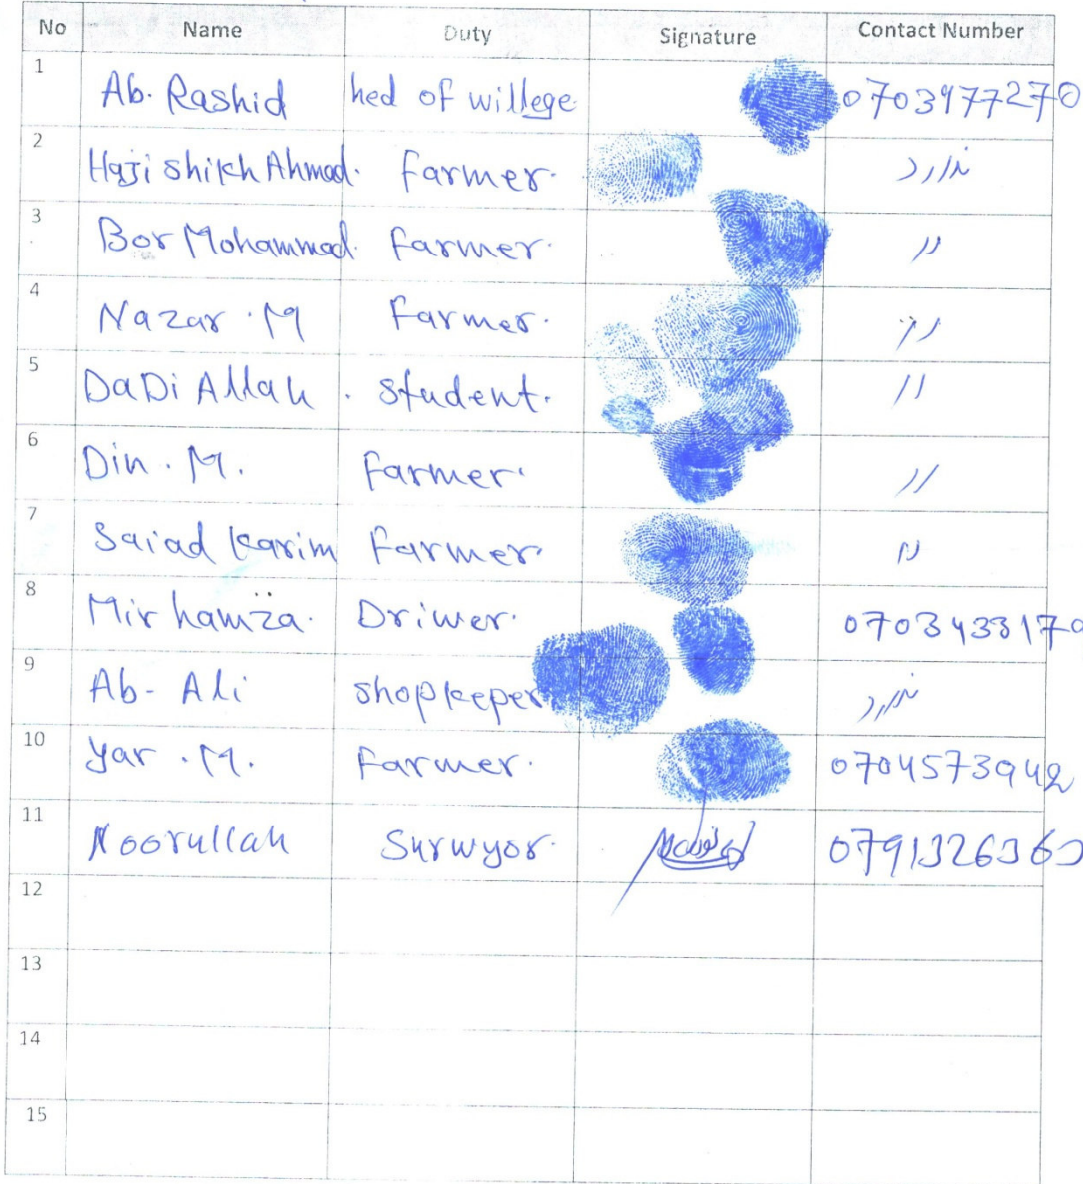 No Name Duty Signature Contact Number
1 Ab. Rashid hed of willege 0703977270
2 Haji Shikh Ahmad. farmer. ندارد
3 Bor Mohammad. farmer. //
4 Nazar . M farmer. //
5 DaDi Allah . student. //
6 Din . M. farmer. //
7 Saiad karim farmer //
8 Mir hamza. Driwer. 070343317
9 Ab- Ali shopkeeper ندارد
10 Yar . M. farmer. 0704573942
11 Noorullah Surwyor.
12
13
14
15